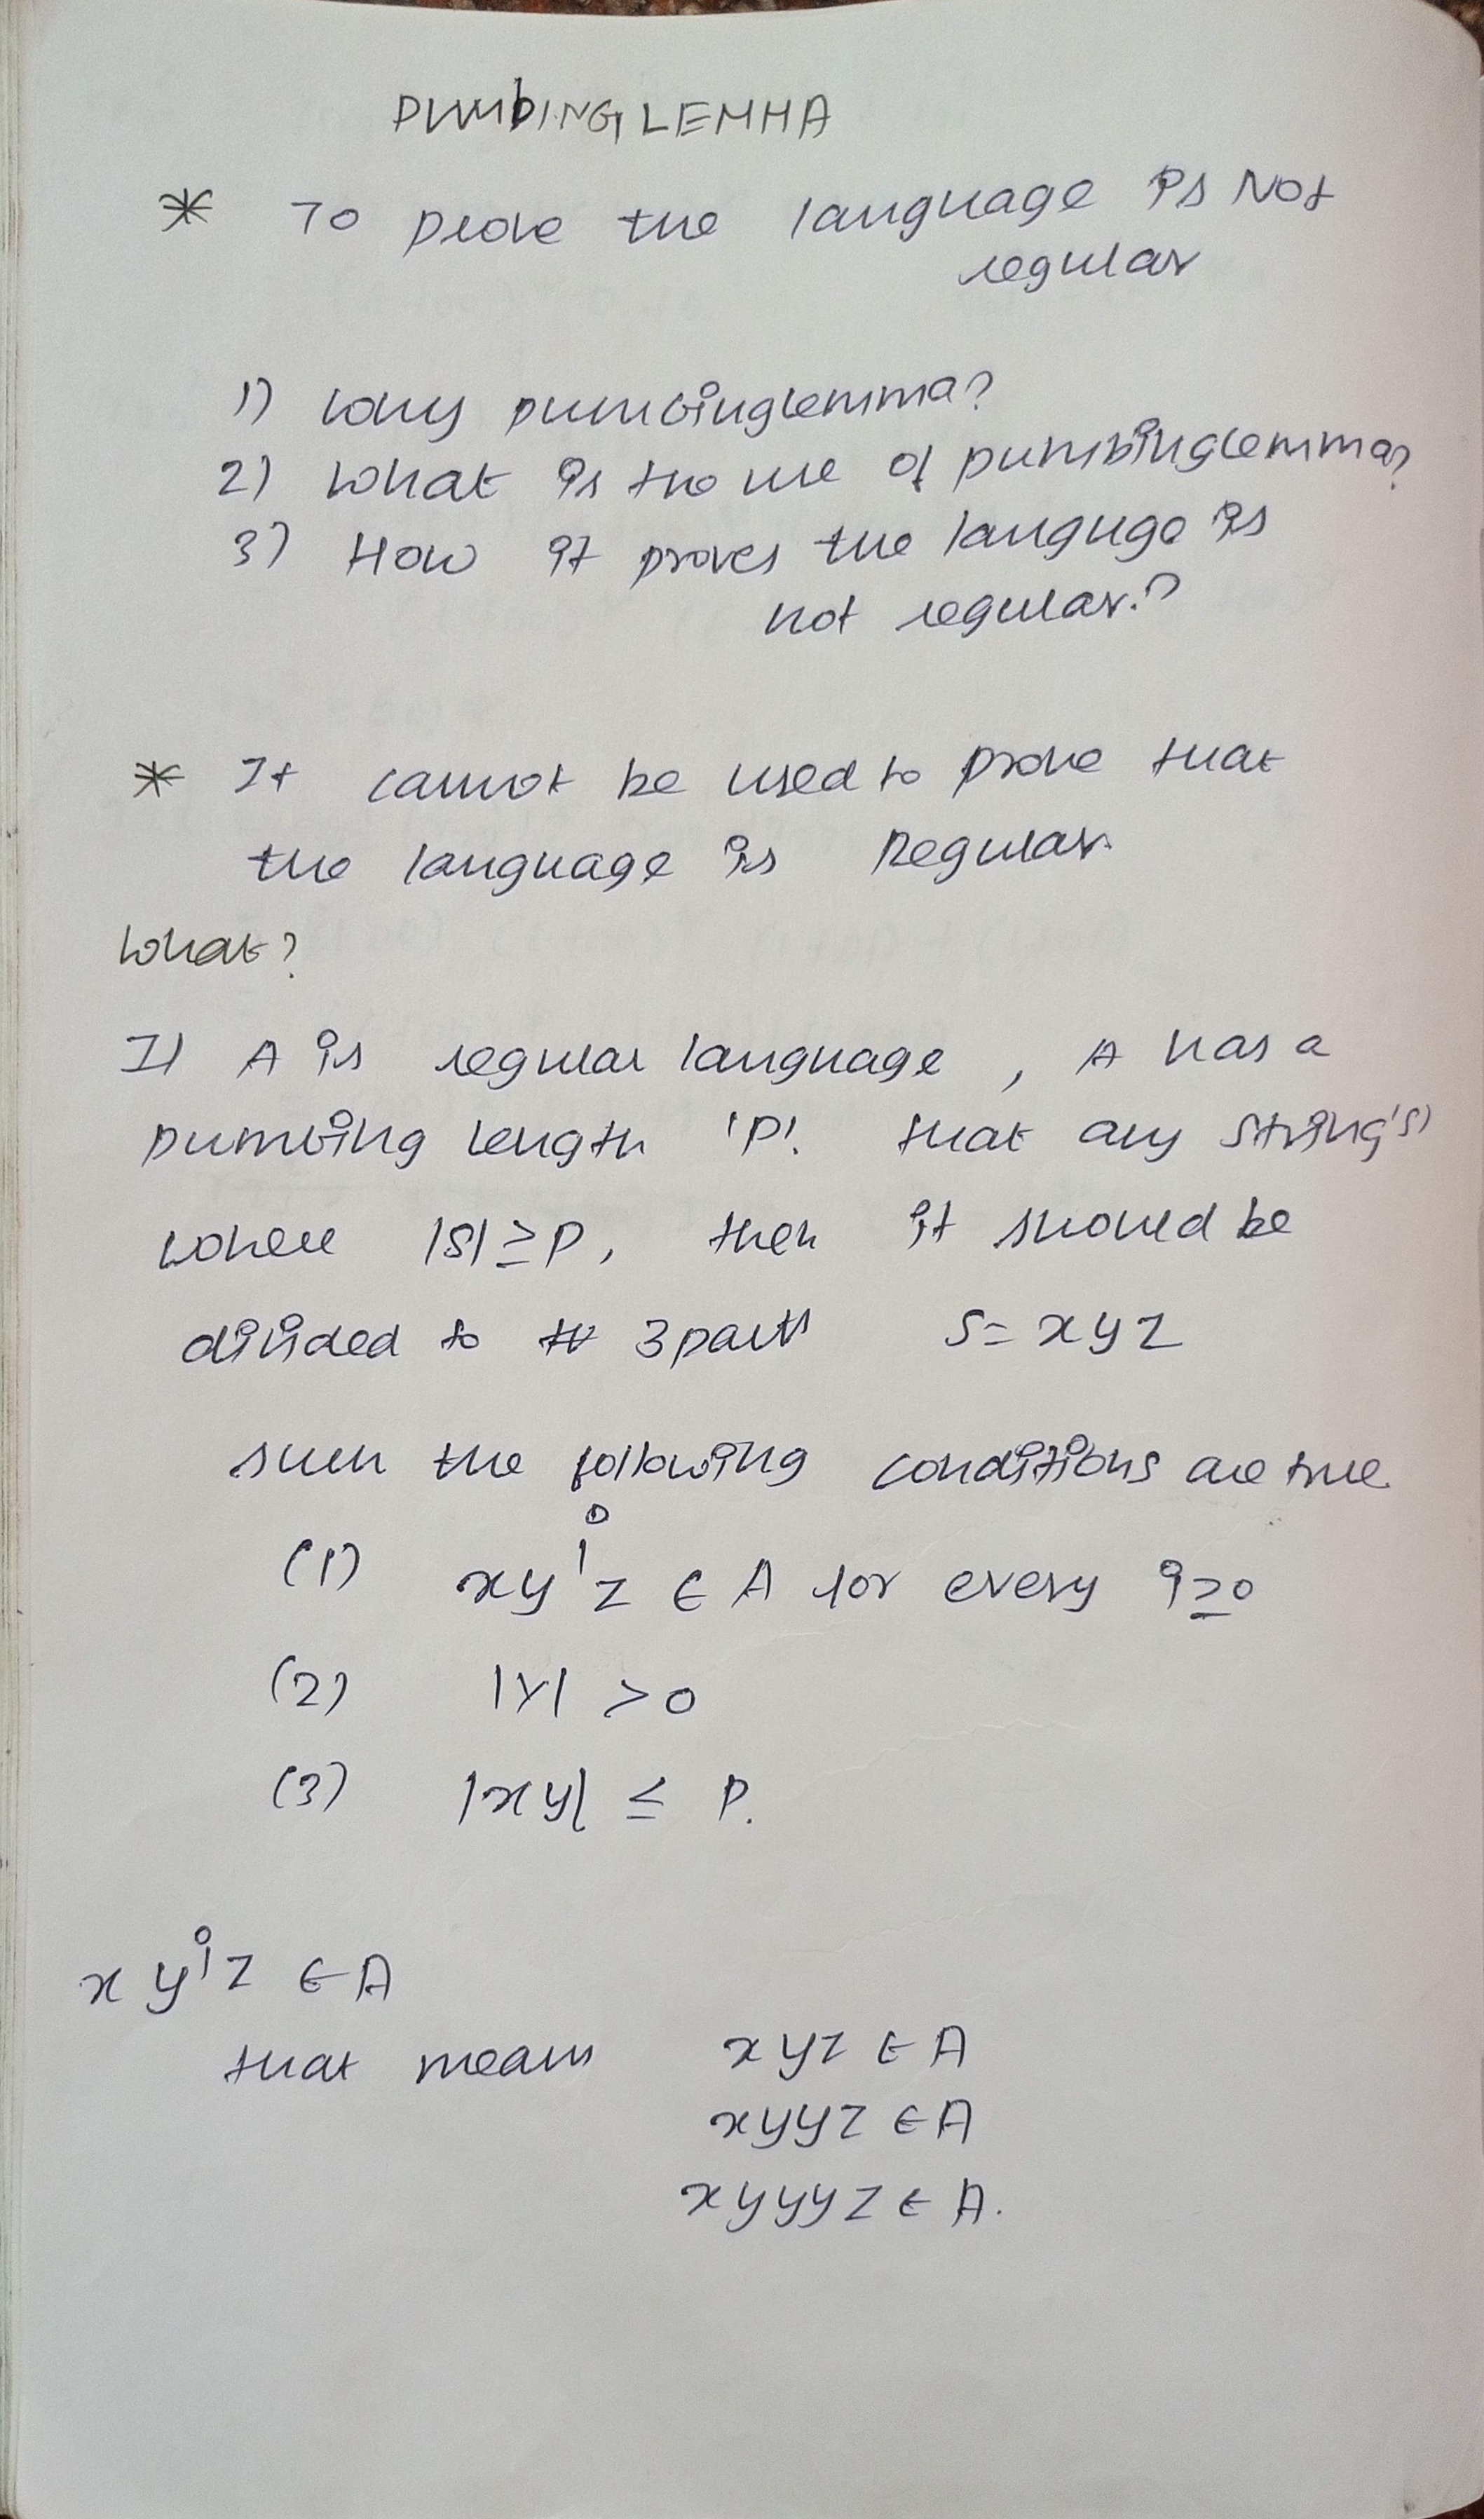 PUMBING LEMMA
* To prove the language is Not
regular
1) Why pumbinglemma?
2) What is the use of pumbinglemma?
3) How it proves the languge is
not regular.?
* It cannot be used to prove that
the language is Regular.
What?
If A is regular language, A has a
pumbing length 'P' that any string 's'
where |S| ≥ P, then it should be
divided to 3 parts S = xyz
such the following conditions are true
(1) xyⁱz ∈ A for every i ≥ 0
(2) |Y| > 0
(3) |xy| ≤ P.
xyⁱz ∈ A
that means xyz ∈ A
xyyz ∈ A
xyyyz ∈ A.